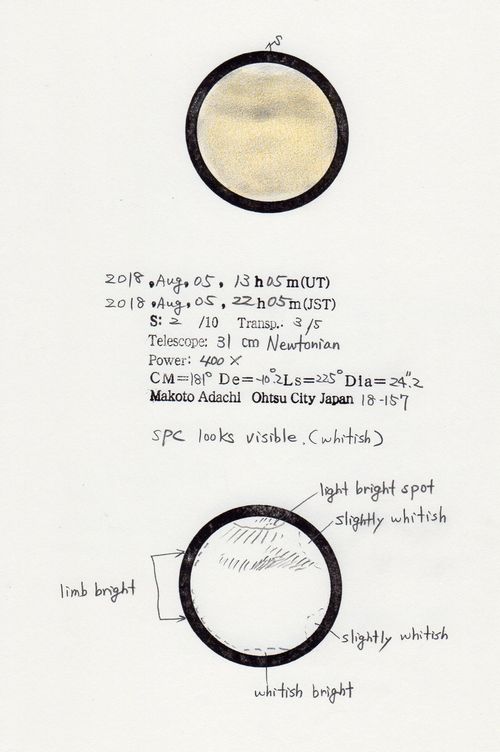 S
2018, Aug, 05, 13h05m(UT)
2018, Aug, 05, 22h05m(JST)
S: 2 /10 Transp.. 3/5
Telescope: 31 cm Newtonian
Power: 400 X
CM=181° De=-10.°2 Ls=225° Dia=24."2
Makoto Adachi Ohtsu City Japan 18-157
SPC looks visible. (whitish)
light bright spot
slightly whitish
limb bright
slightly whitish
whitish bright